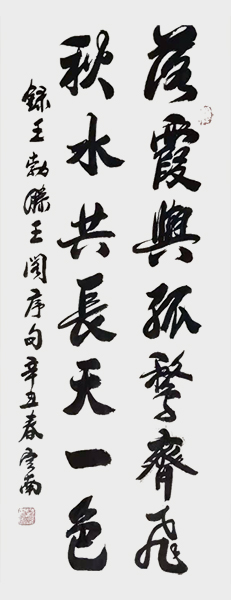 落霞與孤鶩齊飛
秋水共長天一色
錄王勃滕王阁序句辛丑春雲南